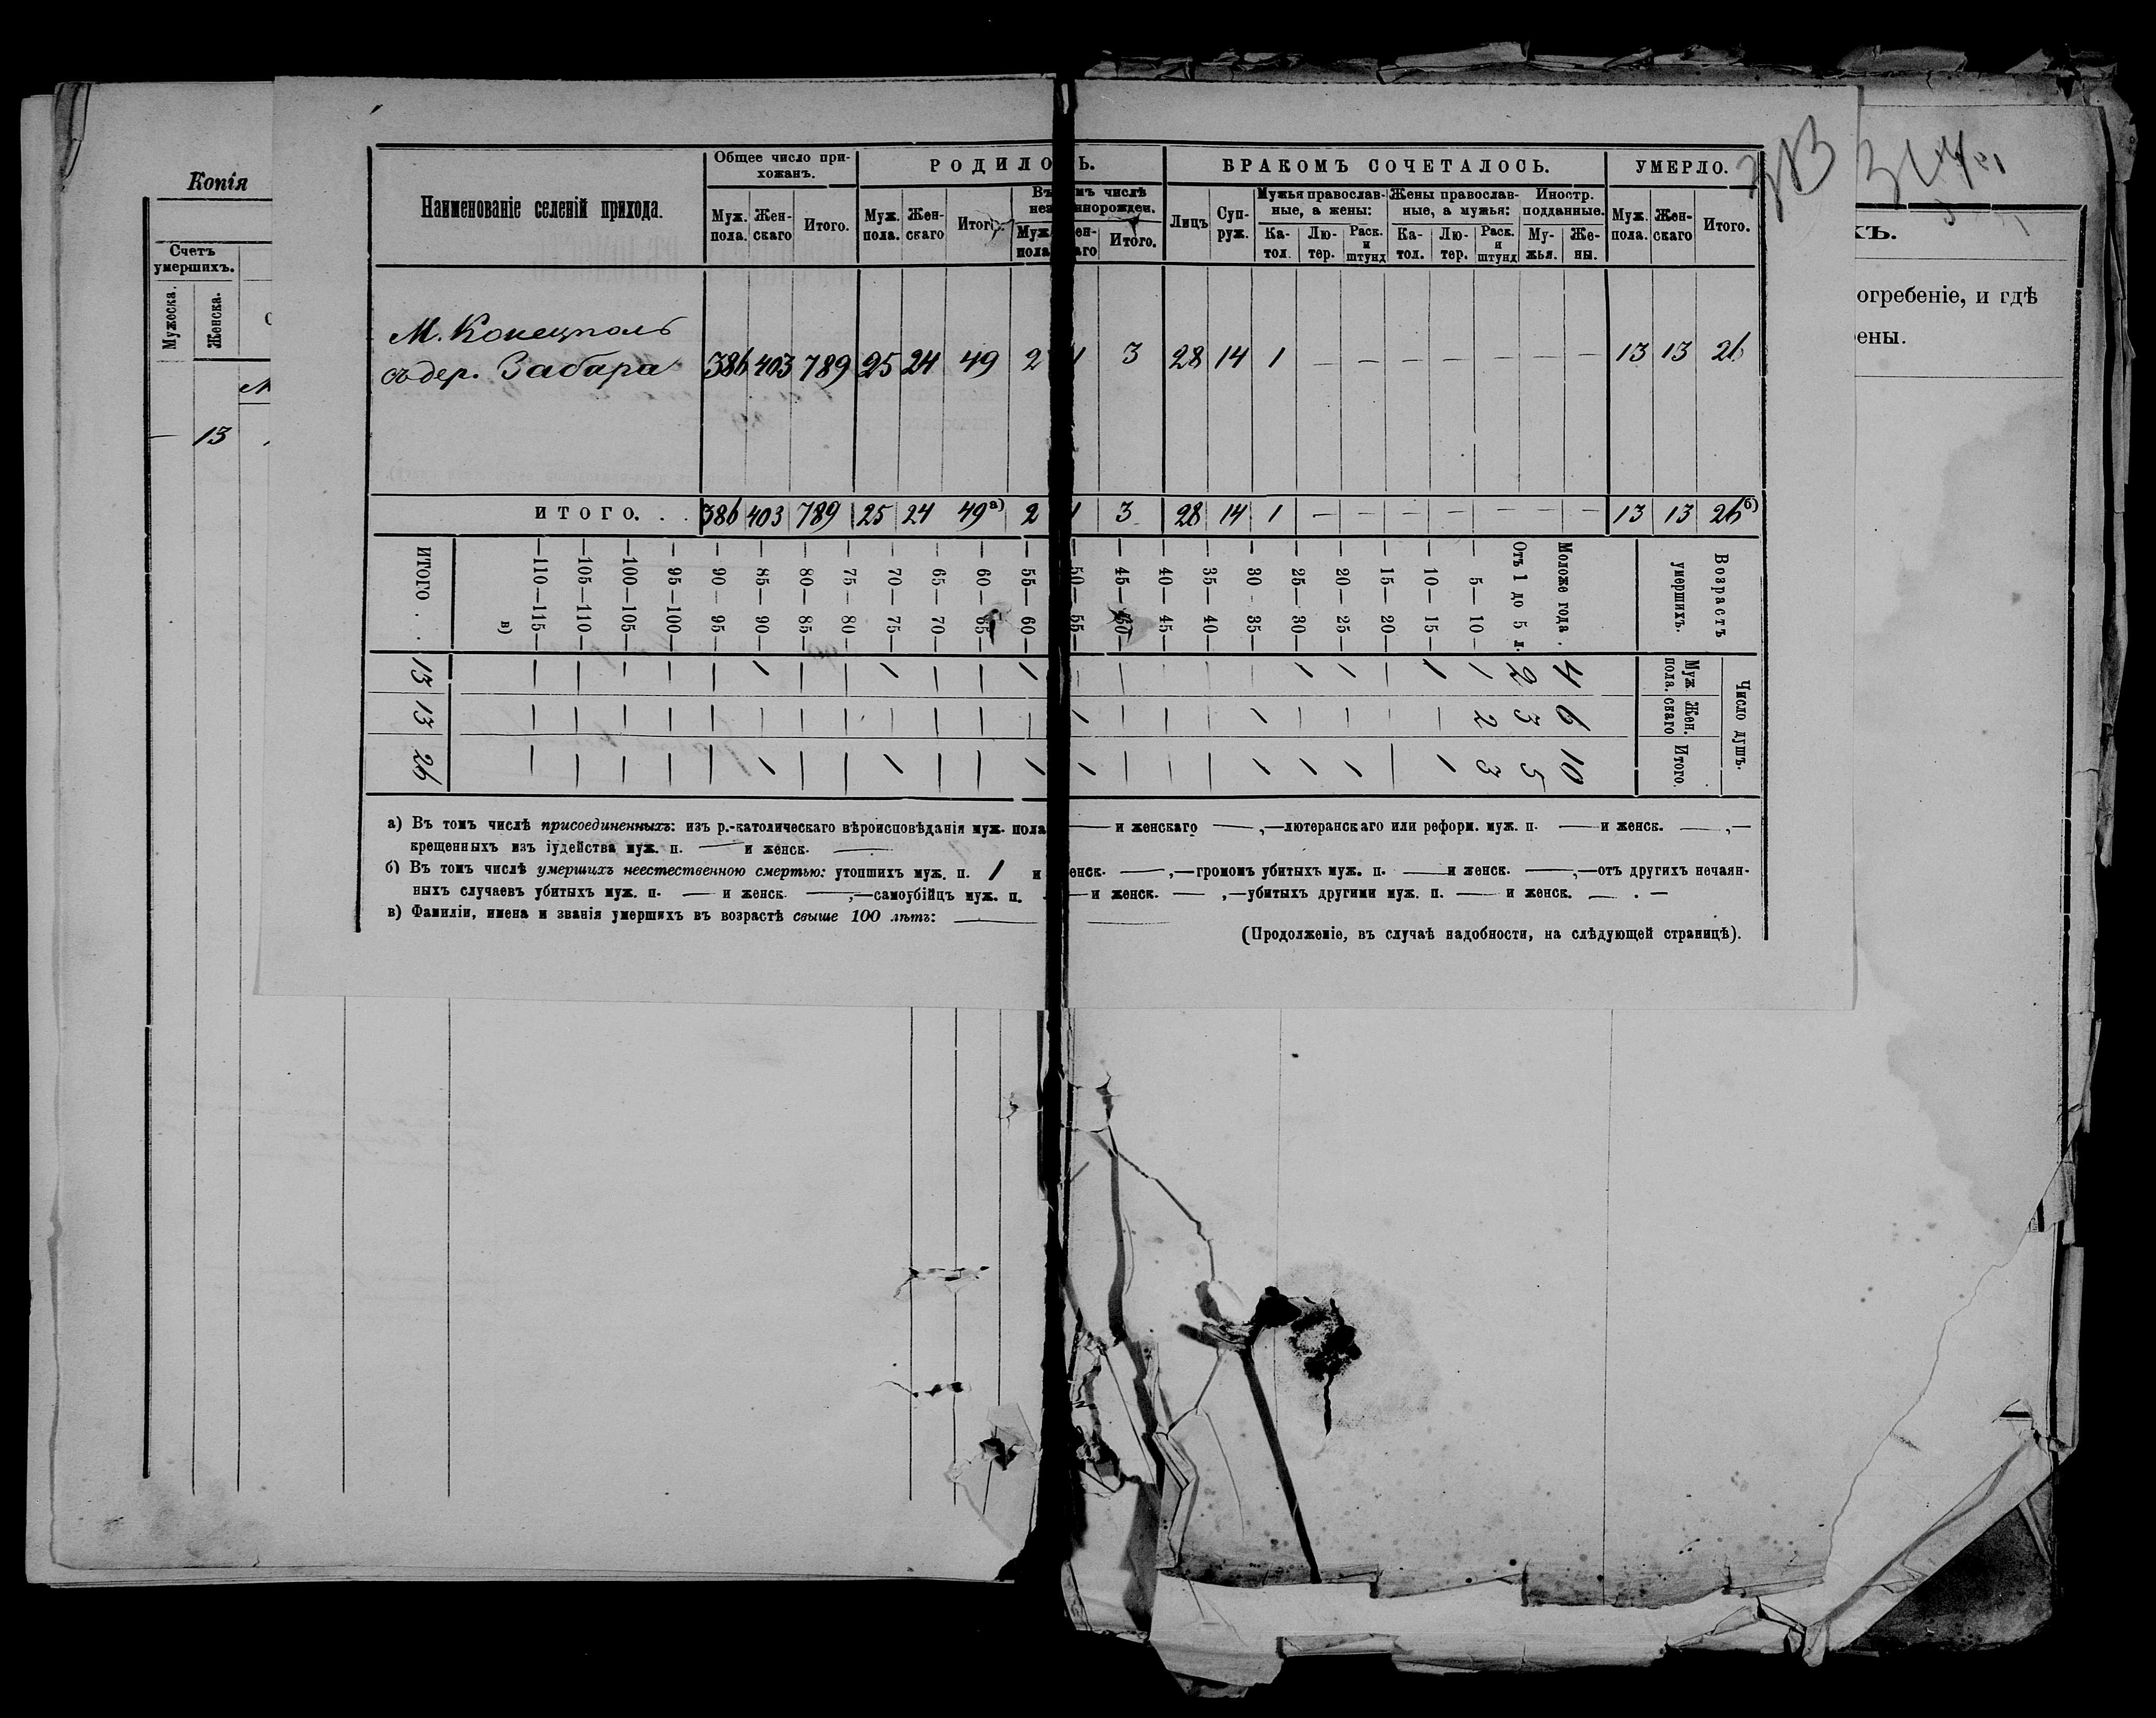 Копія
Счетъ умершихъ.
Мужеска.
Женска.
— 13
огребеніе, и гдѣ
ены.
Наименованіе селеній прихода.
Общее число прихожанъ.
Муж. пола. Женскаго Итого.
РОДИЛО Ь.
Муж. пола. Женскаго Итого.
Въ мъ числѣ
нез ннорожден.
Муж. пола ен- аго Итого.
БРАКОМЪ СОЧЕТАЛОСЬ.
Лицъ Супруж.
Мужья православные, а жены:
Катол. Лютер. Раск. и штунд
Жены православные, а мужья:
Катол. Лютер. Раск. и штунд
Иностр. подданные.
Мужья. Жены.
УМЕРЛО.
Муж. пола. Женскаго Итого.
М. Конецполь
съ дер. Забара 386 403 789 25 24 49 2 1 3 28 14 1 — — — — — — — 13 13 26
ИТОГО. . . 386 403 789 25 24 49а) 2 1 3 28 14 1 — — — — — — — 13 13 26б)
Возрастъ умершихъ.
Число душъ.
Муж пола. Жен. скаго Итого
Моложе года . 4 6 10
Отъ 1 до 5 л. 2 3 5
5 — 10 — 1 2 3
10 — 15 — 1 — 1
15 — 20 —
20 — 25 — 1 — 1
25 — 30 — 1 — 1
30 — 35 — — 1 1
35 — 40 —
40 — 45 —
45 — 50 —
50 — 55 — — 1 1
55 — 60 — 1 — 1
60 — 65 — — — —
65 — 70 — — — —
70 — 75 — 1 — 1
75 — 80 — — — —
80 — 85 — — — —
85 — 90 — 1 — 1
90 — 95 — — — —
95 — 100 — — — —
100 — 105 — — — —
105 — 110 — — — —
110 — 115 — — — —
в)
ИТОГО . . 13 13 26
а) Въ томъ числѣ присоединенныхъ: изъ р.-католическаго вѣроисповѣданія муж. пола — и женскаго —,—лютеранскаго или реформ. муж. п. — и женск. —,—
крещенныхъ изъ іудейства муж. п. — и женск. —
б) Въ томъ числѣ умершихъ неестественною смертью: утопшихъ муж. п. 1 и енск. —,—громомъ убитыхъ муж. п. — и женск. —,—отъ другихъ нечаян-
ныхъ случаевъ убитыхъ муж. п. — и женск. —,—самоубійцъ муж. п. — и женск. —,—убитыхъ другими муж. п. — и женск. — . —
в) Фамиліи, имена и званія умершихъ въ возрастѣ свыше 100 лѣтъ: —
(Продолженіе, въ случаѣ надобности, на слѣдующей страницѣ).